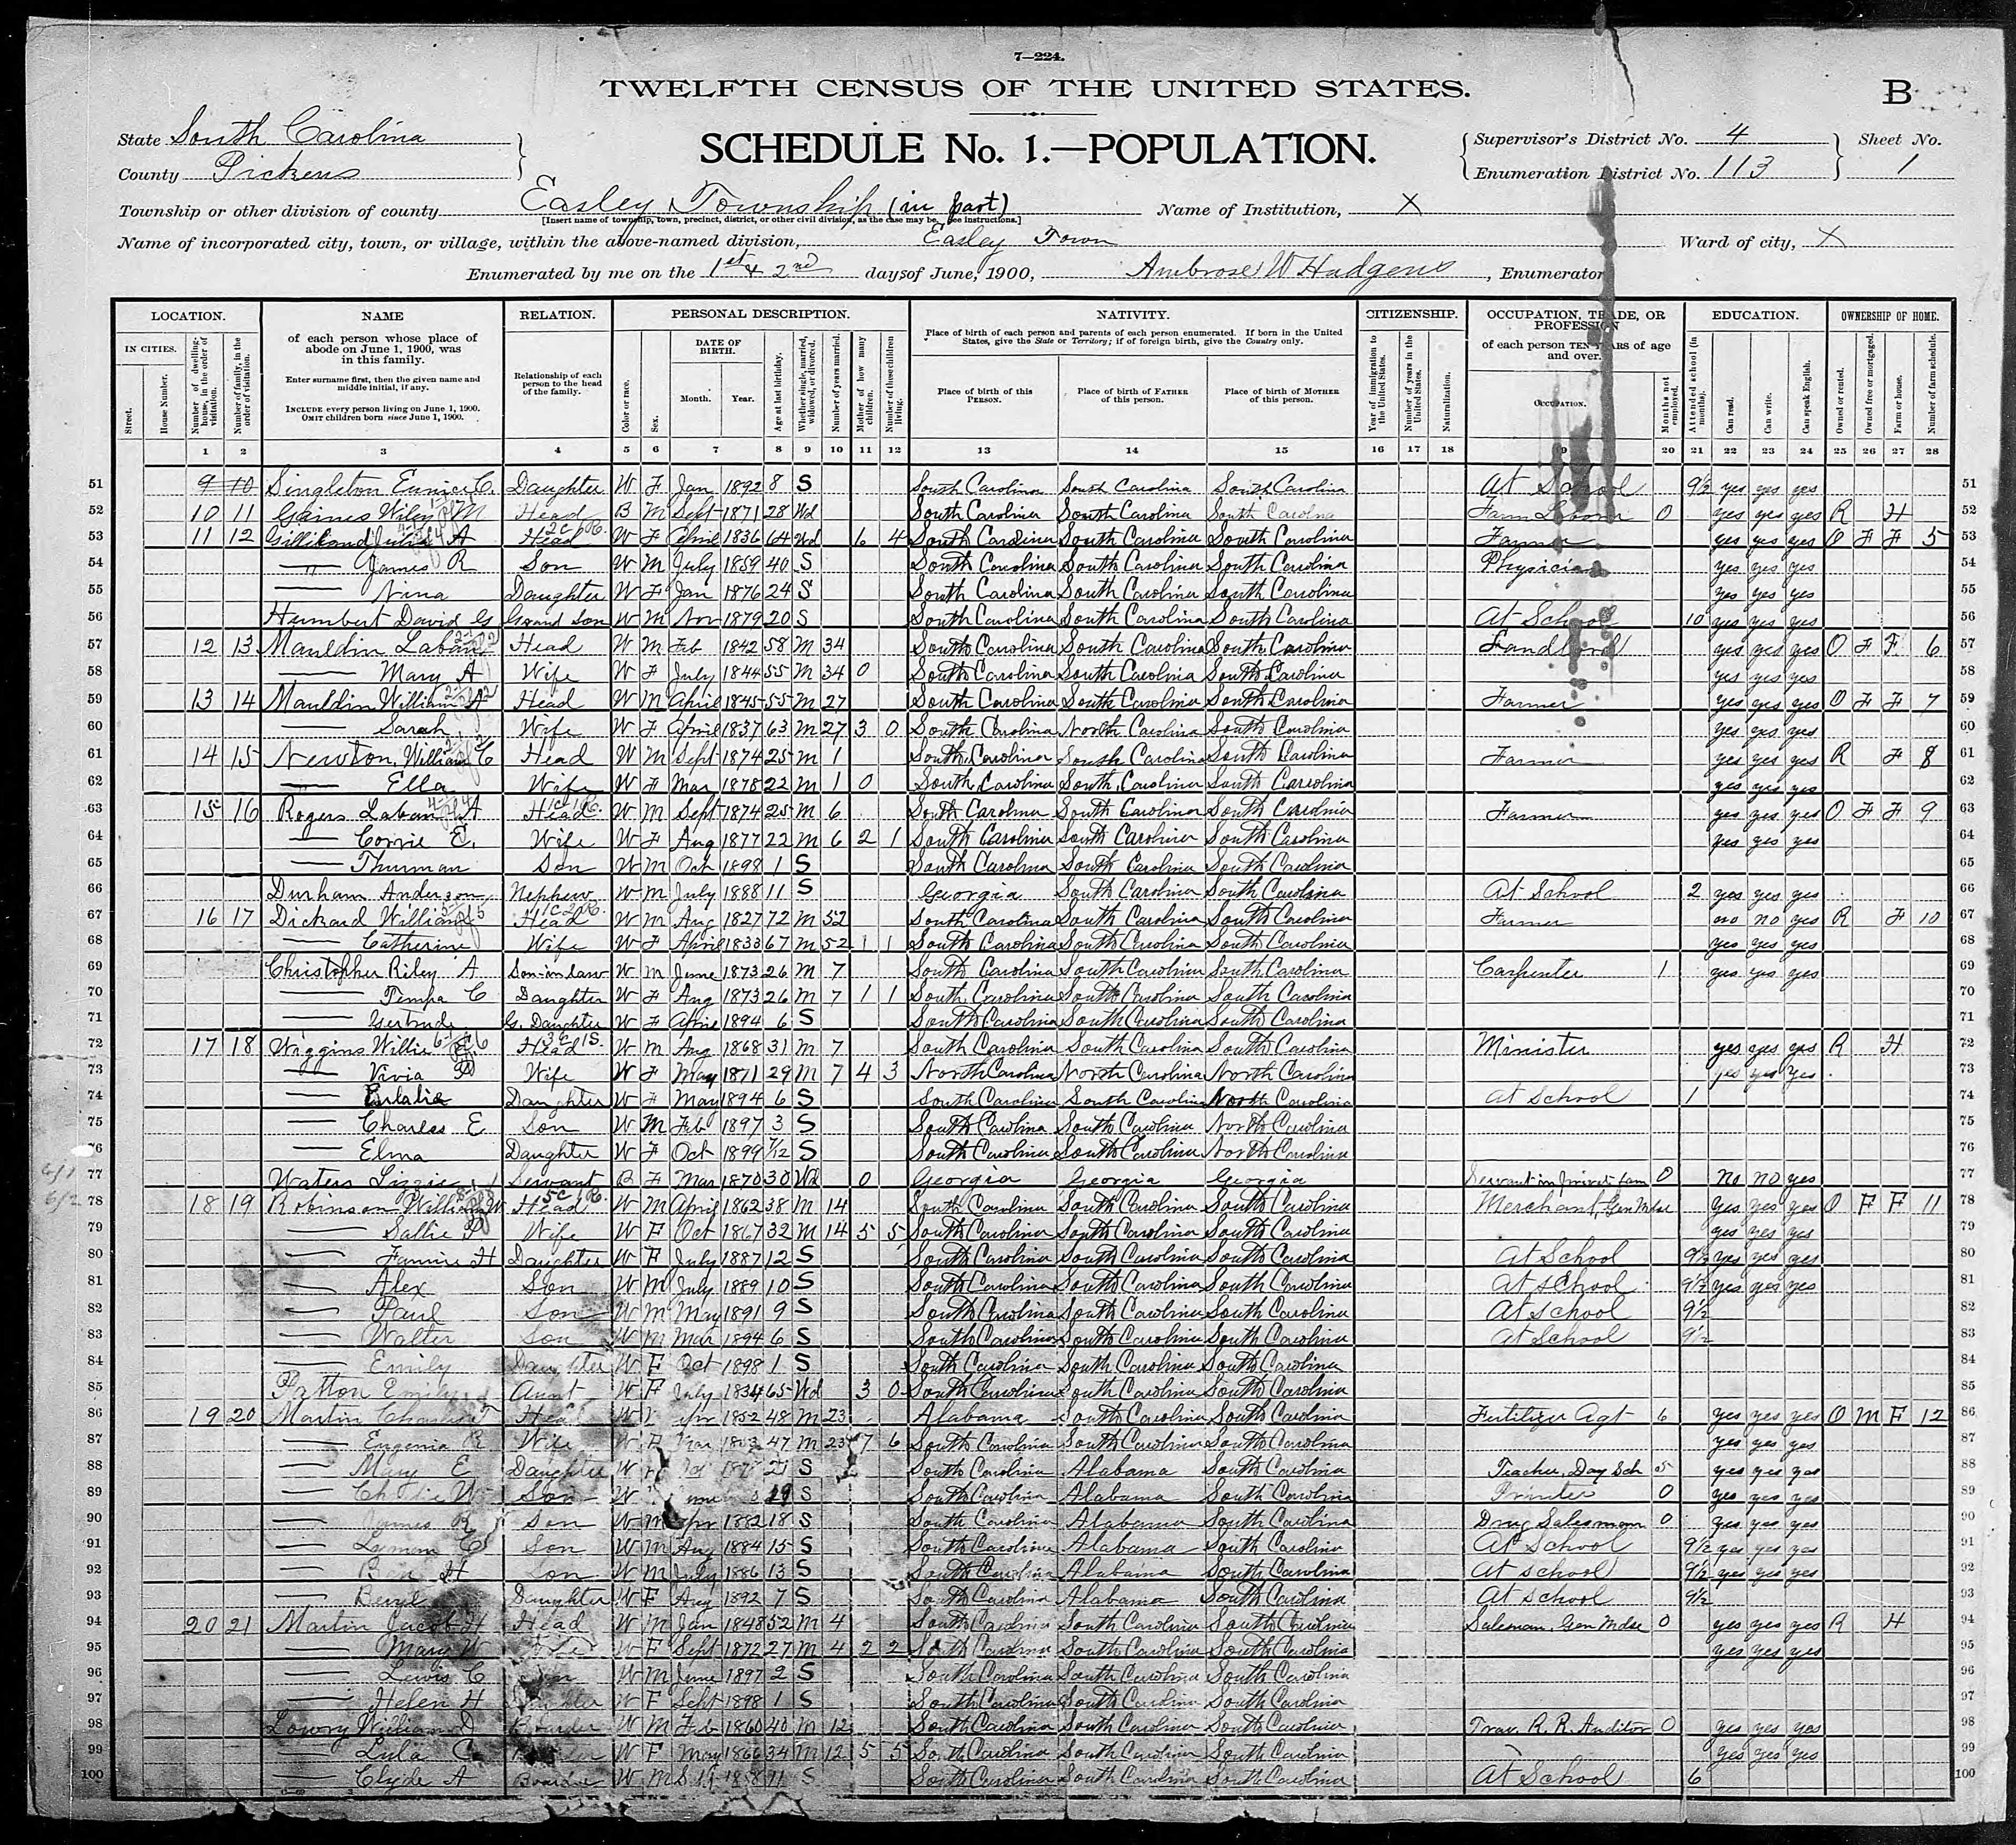 7—224.
TWELFTH CENSUS OF THE UNITED STATES.
B
State South Carolina
County Pickens
SCHEDULE No. 1.—POPULATION.
Supervisor's District No. 4
Enumeration District No. 113
Sheet No. 1
Township or other division of county Easley Township (in part)
[Insert name of township, town, precinct, district, or other civil division, as the case may be. See instructions.]
Name of Institution, X
Name of incorporated city, town, or village, within the above-named division, Easley Town
Ward of city, X
Enumerated by me on the 1st & 2nd days of June, 1900, Ambrose W Hudgens, Enumerator
LOCATION. NAME RELATION. PERSONAL DESCRIPTION. NATIVITY. CITIZENSHIP. OCCUPATION, TRADE, OR PROFESSION EDUCATION. OWNERSHIP OF HOME.
IN CITIES.
Street.
House Number.
Number of dwelling-house, in the order of visitation.
Number of family, in the order of visitation.
of each person whose place of abode on June 1, 1900, was in this family.
Enter surname first, then the given name and middle initial, if any.
INCLUDE every person living on June 1, 1900.
OMIT children born since June 1, 1900.
Relationship of each person to the head of the family.
Color or race.
Sex.
DATE OF BIRTH.
Month. Year.
Age at last birthday.
Whether single, married, widowed, or divorced.
Number of years married.
Mother of how many children.
Number of these children living.
Place of birth of each person and parents of each person enumerated. If born in the United States, give the State or Territory; if of foreign birth, give the Country only.
Place of birth of this PERSON.
Place of birth of FATHER of this person.
Place of birth of MOTHER of this person.
Year of immigration to the United States.
Number of years in the United States.
Naturalization.
of each person TEN YEARS of age and over.
OCCUPATION.
Months not employed.
Attended school (in months).
Can read.
Can write.
Can speak English.
Owned or rented.
Owned free or mortgaged.
Farm or house.
Number of farm schedule.
1 2 3 4 5 6 7 8 9 10 11 12 13 14 15 16 17 18 20 21 22 23 24 25 26 27 28
51 9 10 Singleton Eunice C. Daughter W F Jan 1892 8 S South Carolina South Carolina South Carolina At School 9½ yes yes yes 51
52 10 11 Gaines Wiley M Head B M Sept 1871 28 Wd South Carolina South Carolina South Carolina Farm Laborer 0 yes yes yes R H 52
53 11 12 Gilliland Julia A Head W F April 1836 64 Wd 6 4 South Carolina South Carolina South Carolina Farmer yes yes yes O F F 5 53
54 — " James R Son W M July 1859 40 S South Carolina South Carolina South Carolina Physician yes yes yes 54
55 — " Nina Daughter W F Jan 1876 24 S South Carolina South Carolina South Carolina yes yes yes 55
56 Humbert David G Grand Son W M Nov 1879 20 S South Carolina South Carolina South Carolina At School 10 yes yes yes 56
57 12 13 Mauldin Laban Head W M Feb 1842 58 M 34 South Carolina South Carolina South Carolina Landlord yes yes yes O F F 6 57
58 — Mary A Wife W F July 1844 55 M 34 0 South Carolina South Carolina South Carolina yes yes yes 58
59 13 14 Mauldin William A Head W M April 1845 55 M 27 South Carolina South Carolina South Carolina Farmer yes yes yes O F F 7 59
60 — Sarah Wife W F April 1837 63 M 27 3 0 South Carolina North Carolina South Carolina yes yes yes 60
61 14 15 Newton, William C Head W M Sept 1874 25 M 1 South Carolina South Carolina South Carolina Farmer yes yes yes R F 8 61
62 — Ella Wife W F Mar 1878 22 M 1 0 South Carolina South Carolina South Carolina yes yes yes 62
63 15 16 Rogers Laban A Head W M Sept 1874 25 M 6 South Carolina South Carolina South Carolina Farmer yes yes yes O F F 9 63
64 — Corrie E. Wife W F Aug 1877 22 M 6 2 1 South Carolina South Carolina South Carolina yes yes yes 64
65 — Thurman Son W M Oct 1898 1 S South Carolina South Carolina South Carolina 65
66 Durham Anderson Nephew W M July 1888 11 S Georgia South Carolina South Carolina At School 2 yes yes yes 66
67 16 17 Dickard William Head W M Aug 1827 72 M 52 South Carolina South Carolina South Carolina Farmer no no yes R F 10 67
68 — Catherine Wife W F April 1833 67 M 52 1 1 South Carolina South Carolina South Carolina yes yes yes 68
69 Christopher Riley A Son-in-law W M June 1873 26 M 7 South Carolina South Carolina South Carolina Carpenter 1 yes yes yes 69
70 — Tempa C Daughter W F Aug 1873 26 M 7 1 1 South Carolina South Carolina South Carolina 70
71 — Gertrude G. Daughter W F April 1894 6 S South Carolina South Carolina South Carolina 71
72 17 18 Wiggins Willie E. Head W M Aug 1868 31 M 7 South Carolina South Carolina South Carolina Minister yes yes yes R H 72
73 — Vivia P Wife W F May 1871 29 M 7 4 3 North Carolina North Carolina North Carolina yes yes yes 73
74 — Eulalie Daughter W F May 1894 6 S South Carolina South Carolina North Carolina at School 1 74
75 — Charles E Son W M Feb 1897 3 S South Carolina South Carolina North Carolina 75
76 — Elma Daughter W F Oct 1899 7/12 S South Carolina South Carolina North Carolina 76
77 Waters Lizzie Servant B F Mar 1870 30 Wd 0 Georgia Georgia Georgia Servant in private fam 0 No no yes 77
78 18 19 Robinson William W Head W M April 1862 38 M 14 South Carolina South Carolina South Carolina Merchant, Gen Mdse yes yes yes O F F 11 78
79 — Sallie P Wife W F Oct 1867 32 M 14 5 5 South Carolina South Carolina South Carolina yes yes yes 79
80 — Fannie H Daughter W F July 1887 12 S South Carolina South Carolina South Carolina At School 9½ yes yes yes 80
81 — Alex Son W M July 1889 10 S South Carolina South Carolina South Carolina At School 9½ yes yes yes 81
82 — Paul Son W M May 1891 9 S South Carolina South Carolina South Carolina At School 9½ 82
83 — Walter Son W M Mar 1894 6 S South Carolina South Carolina South Carolina At School 9½ 83
84 — Emily Daughter W F Oct 1898 1 S South Carolina South Carolina South Carolina 84
85 Patton Emily Aunt W F July 1834 65 Wd 3 0 South Carolina South Carolina South Carolina 85
86 19 20 Martin Charles T Head W Apr 1852 48 M 23 Alabama South Carolina South Carolina Fertilizer Agt 6 yes yes yes O M F 12 86
87 — Eugenia R Wife W F Mar 1853 47 M 23 7 6 South Carolina South Carolina South Carolina yes yes yes 87
88 — Mary E Daughter W 21 S South Carolina Alabama South Carolina Teacher, Day Sch yes yes yes 88
89 — W Son W 19 S South Carolina Alabama South Carolina Printer 0 yes yes yes 89
90 — James R Son W M Apr 1882 18 S South Carolina Alabama South Carolina Drug Salesman 0 yes yes yes 90
91 — C Son W M Aug 1884 15 S South Carolina Alabama South Carolina At School 9½ yes yes yes 91
92 — H Son W M July 1886 13 S South Carolina Alabama South Carolina At School 9½ yes yes yes 92
93 — Daughter W F Aug 1892 7 S South Carolina Alabama South Carolina At School 9½ 93
94 20 21 Martin Jacob H Head W M Jan 1848 52 M 4 South Carolina South Carolina South Carolina Salesman, Gen Mdse 0 yes yes yes R H 94
95 — Mary W Wife W F Sept 1872 27 M 4 2 2 South Carolina South Carolina South Carolina yes yes yes 95
96 — Lewis C Son W M June 1897 2 S South Carolina South Carolina South Carolina 96
97 — Helen H Daughter W F Sept 1898 1 S South Carolina South Carolina South Carolina 97
98 Lowry William J Boarder W M Feb 1860 40 M 12 South Carolina South Carolina South Carolina Trav. R. R. Auditor 0 yes yes yes 98
99 — Lula C Boarder W F May 1866 34 M 12 5 5 South Carolina South Carolina South Carolina yes yes yes 99
100 — Clyde A Boarder W M 1888 11 S South Carolina South Carolina South Carolina At School 6 100